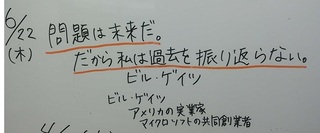 6/22
(木)
問題は未来だ。
だから私は過去を振り返らない。
ビル・ゲイツ
ビル・ゲイツ
アメリカの実業家
マイクロソフトの共同創業者